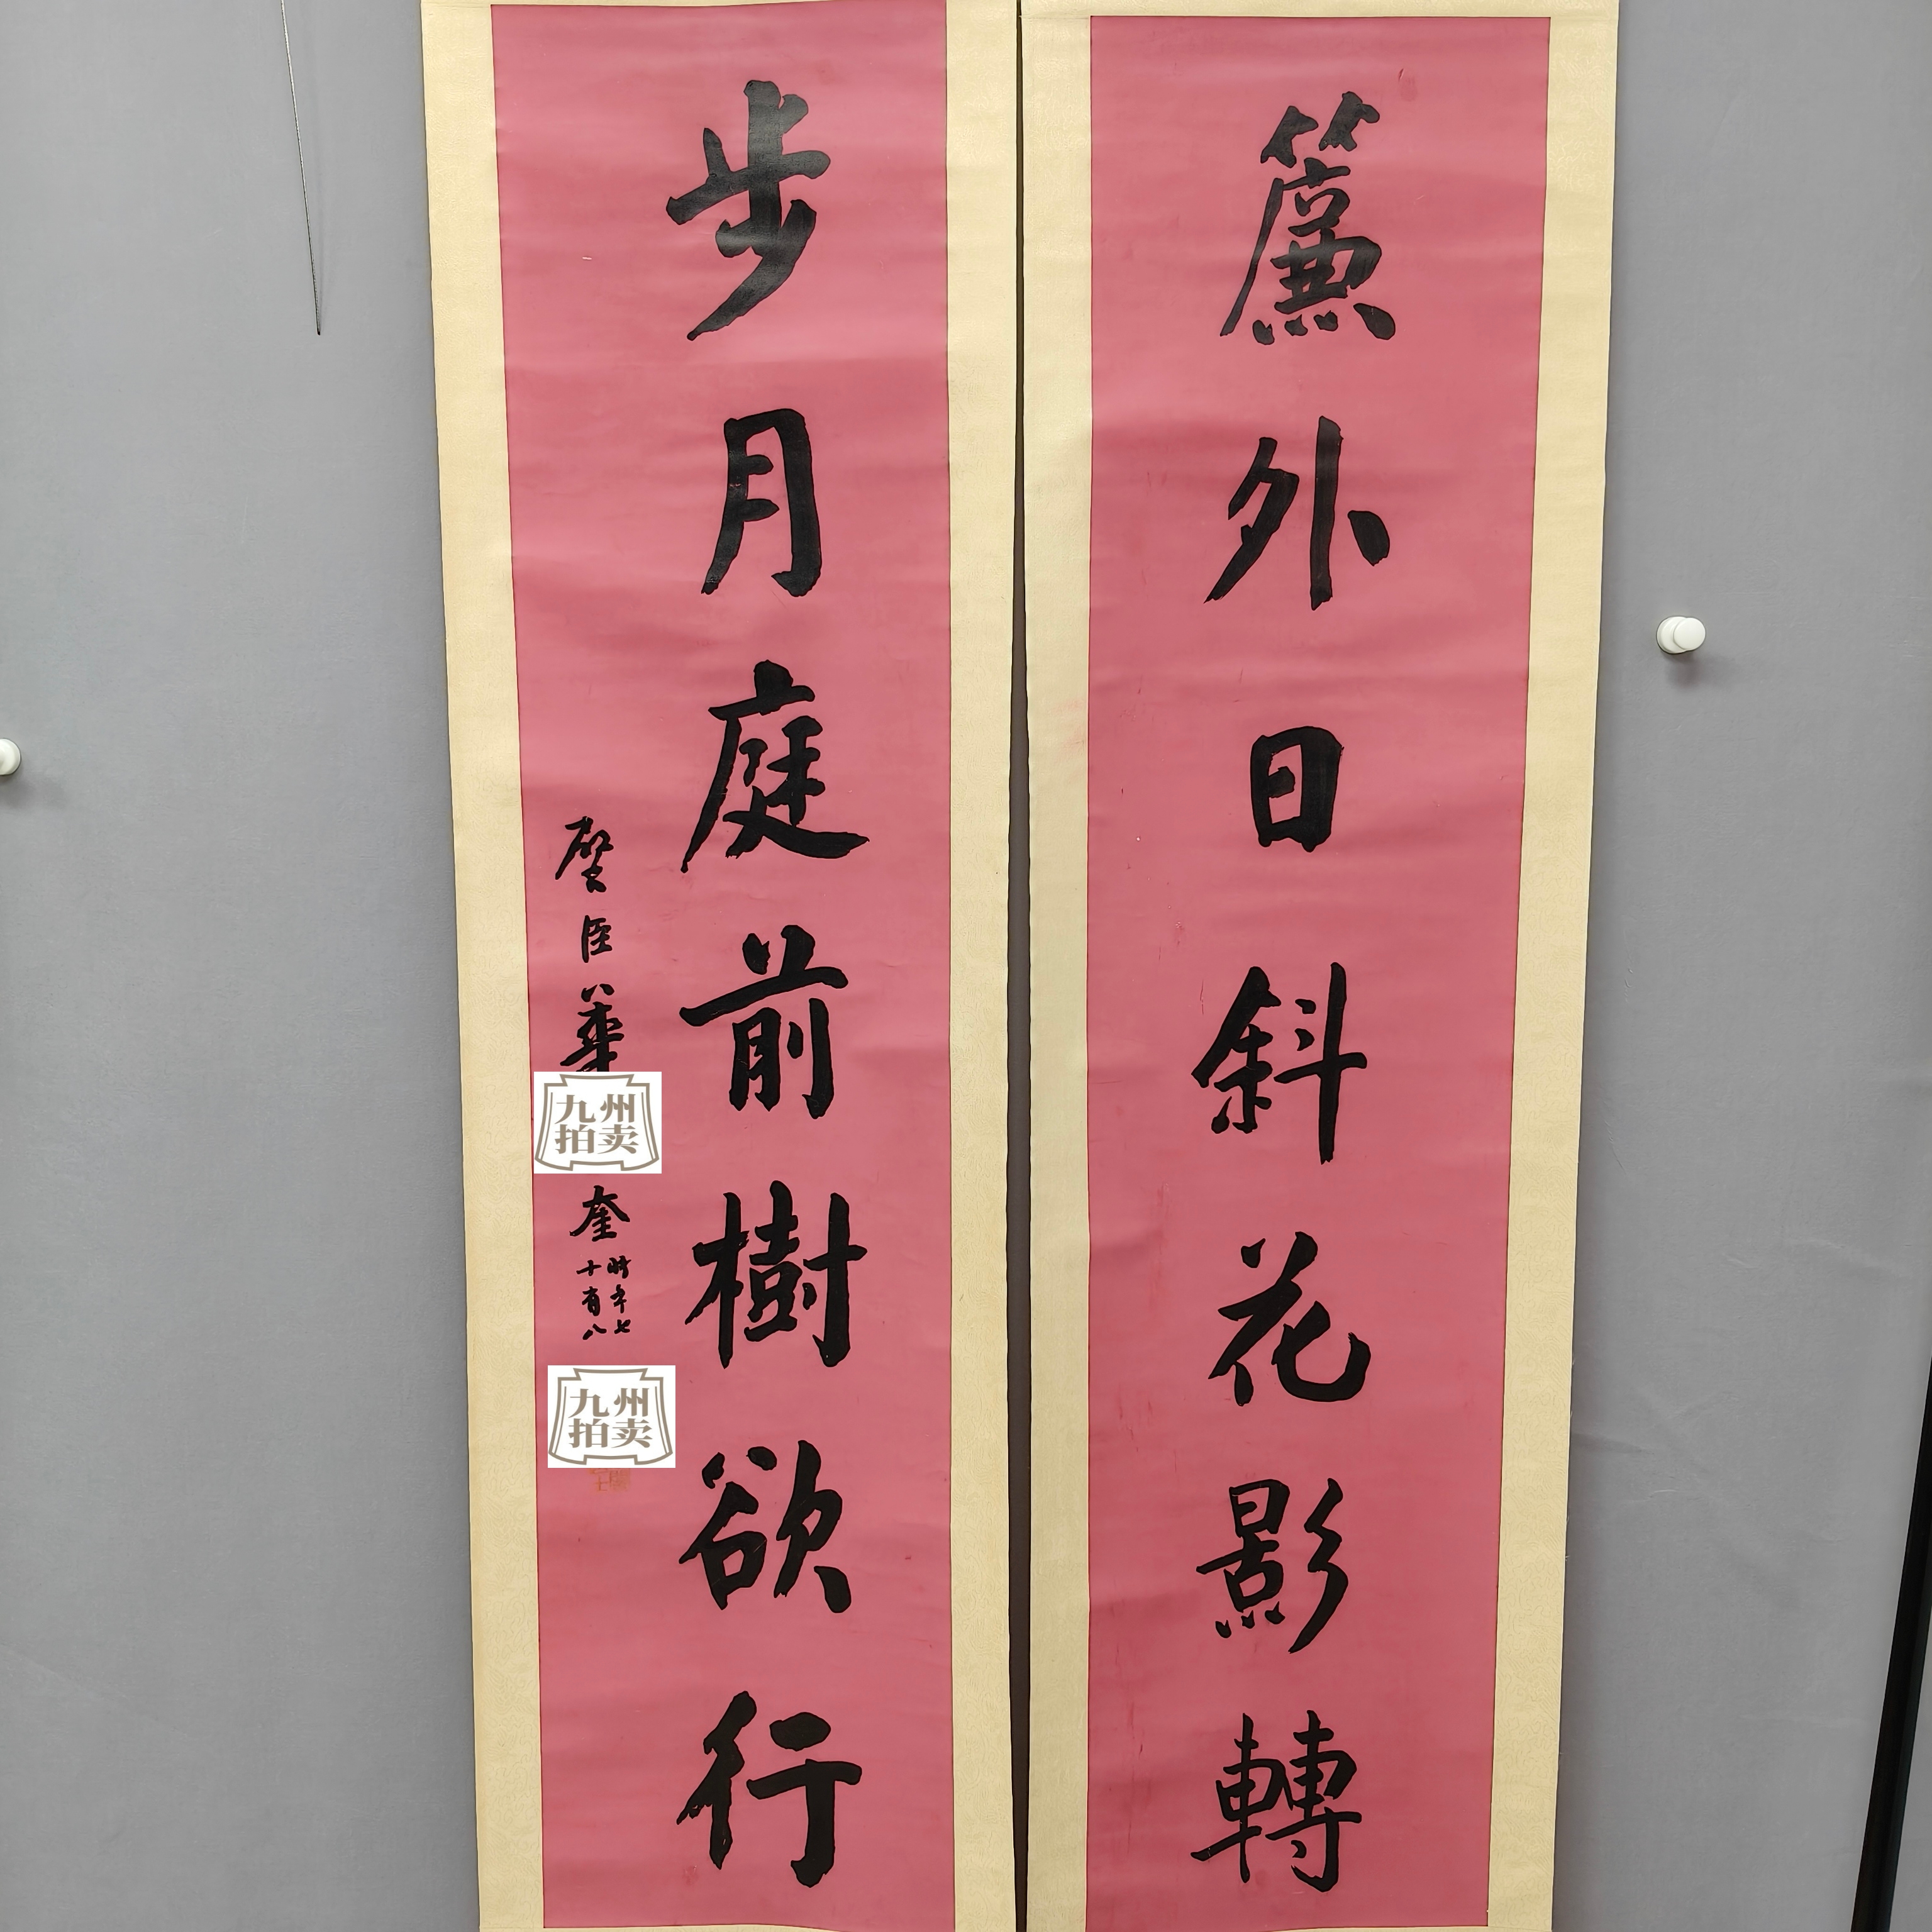 簾外日斜花影轉
步月庭前樹欲行
臣華
奎
時年七
十有八
九州
拍卖
九州
拍卖